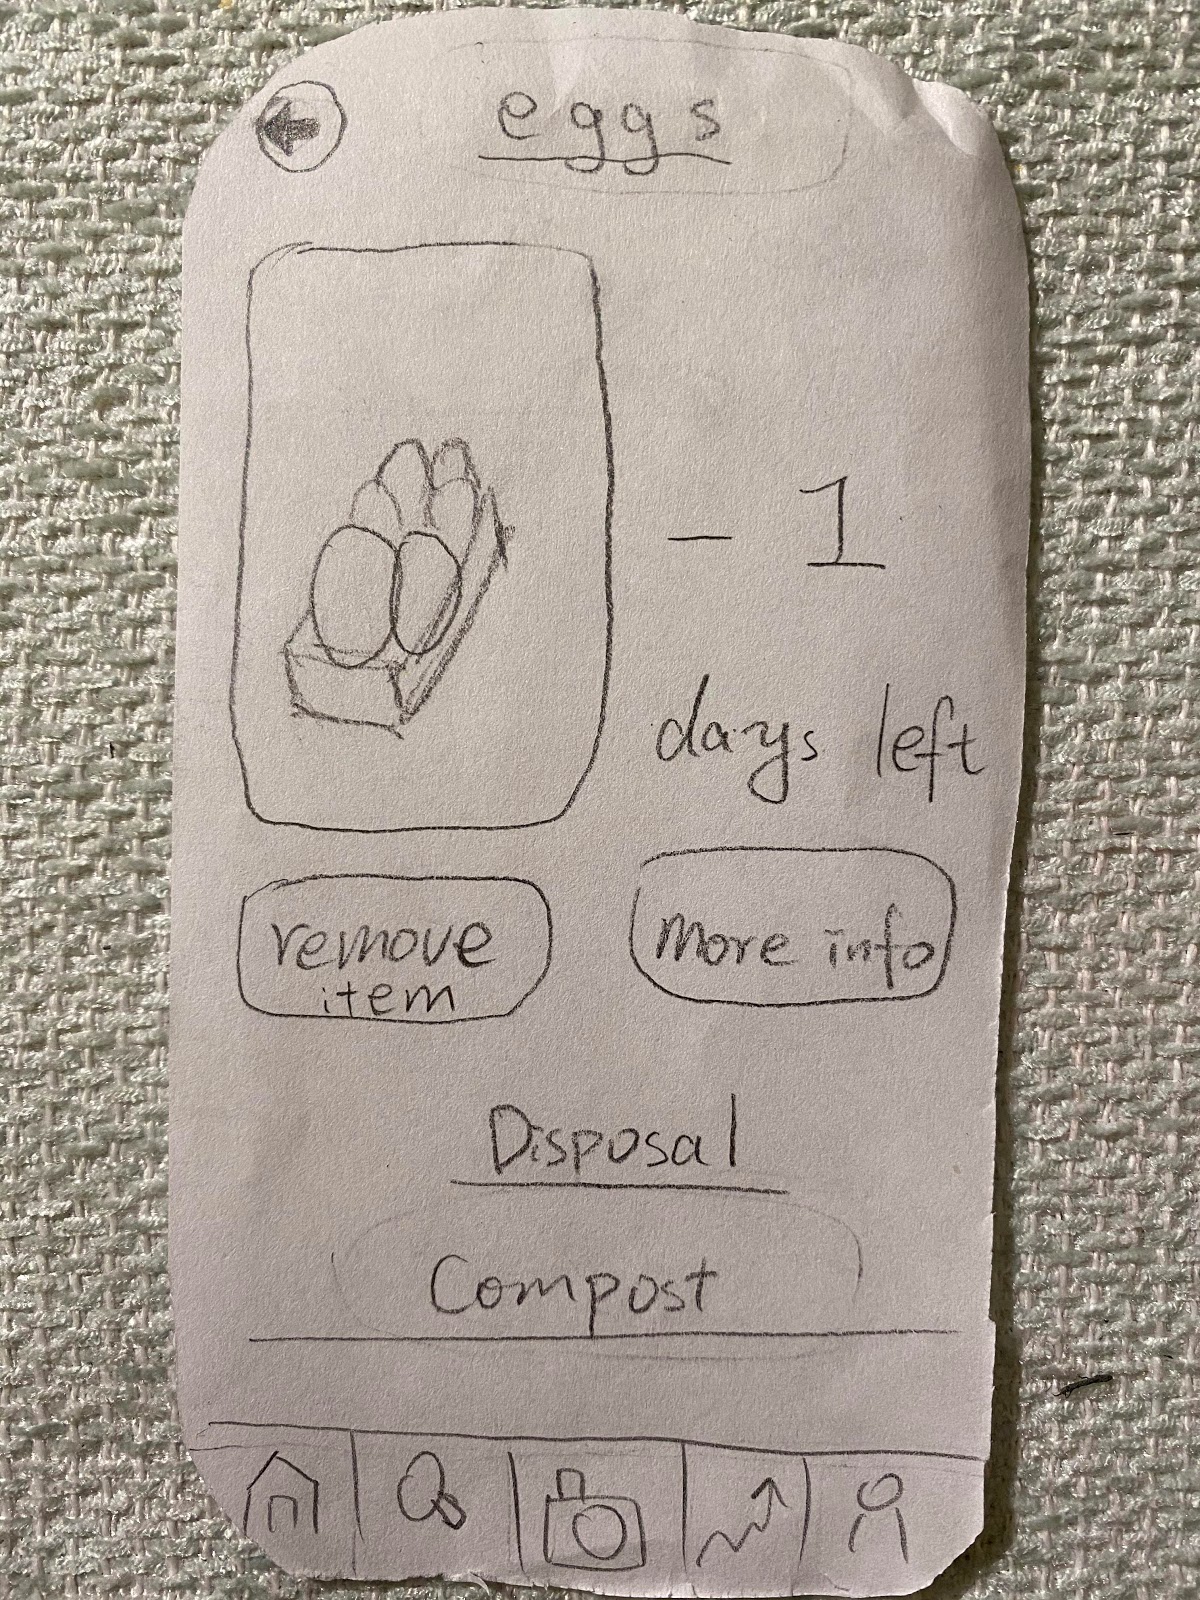 eggs
- 1
days left
remove
item
more info
Disposal
Compost